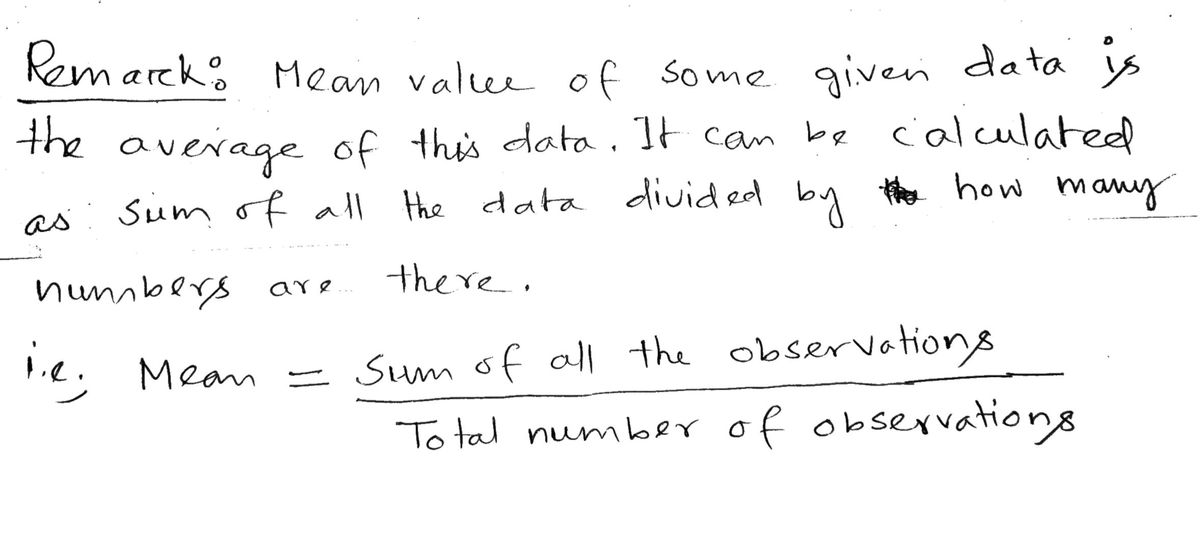 Remark: Mean value of some given data is
the average of this data. It can be calculated
as sum of all the data divided by how many
numbers are there.
i.e; Mean = Sum of all the observations
Total number of observations